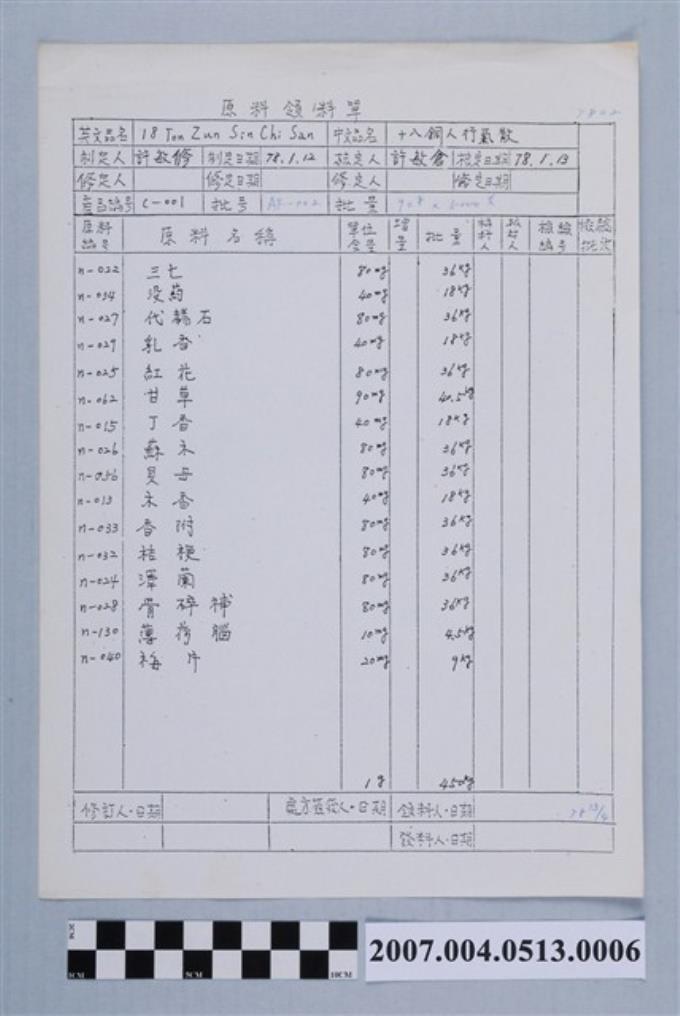 原料領料單
7802
英文品名 18 Ton Zun Sin Chi San 中文品名 十八銅人行氣散
制定人 許敏修 制定日期 78.1.12 核定人 許敏倉 核定日期 78.1.13
修定人 修定日期 修定人 修定日期
產品編號 C-001 批號 批量
原料編號 原料名稱 單位含量 增量 批量 檢驗編號 檢驗批次
n-022 三七 80mg 36kg
n-034 没葯 40mg 18kg
n-027 代赭石 80mg 36kg
n-029 乳香 40mg 18kg
n-025 紅花 80mg 36kg
n-062 甘草 90mg 40.5kg
n-015 丁香 40mg 18kg
n-026 蘇木 80mg 36kg
n-056 貝母 80mg 36kg
n-013 木香 40mg 18kg
n-033 香附 80mg 36kg
n-032 桔梗 80mg 36kg
n-024 澤蘭 80mg 36kg
n-028 骨碎補 80mg 36kg
n-130 薄荷腦 10mg 4.5kg
n-040 梅片 20mg 9kg
1g 450kg
修訂人·日期 領料人·日期
發料人·日期
1CM 5CM 10CM
2007.004.0513.0006